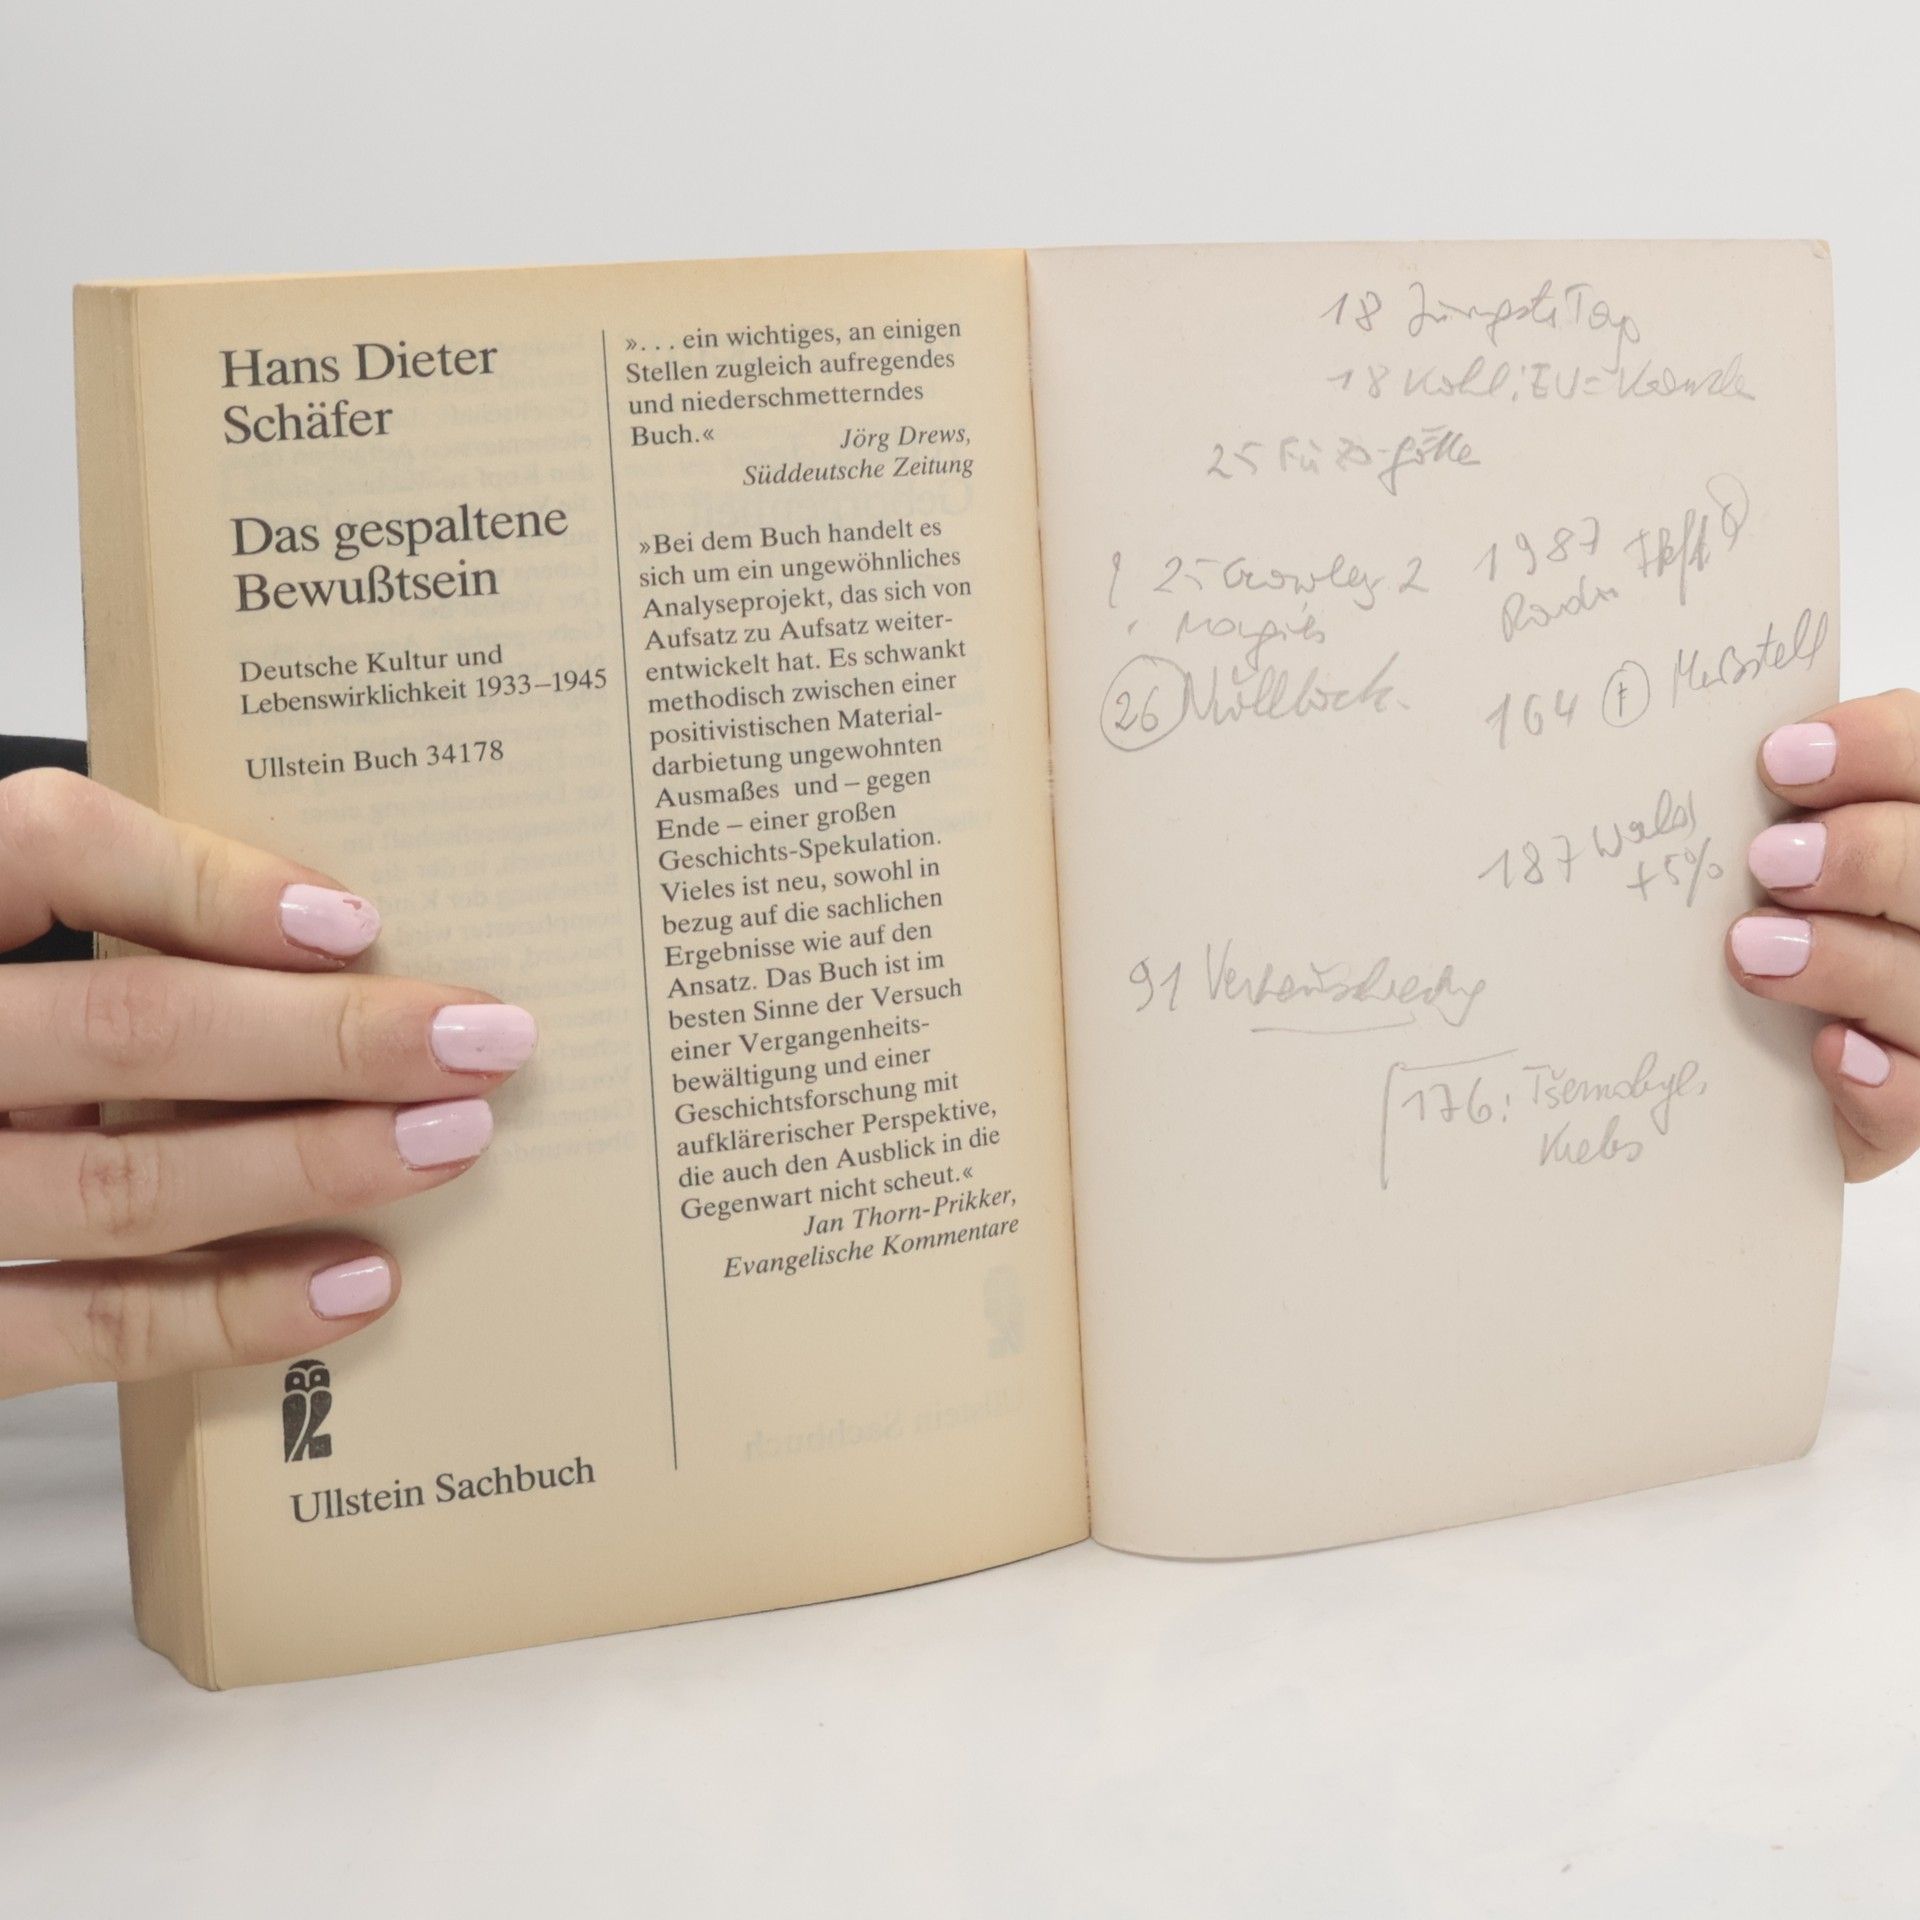 Hans Dieter
Schäfer
Das gespaltene
Bewußtsein
Deutsche Kultur und
Lebenswirklichkeit 1933–1945
Ullstein Buch 34178
Ullstein Sachbuch
»... ein wichtiges, an einigen
Stellen zugleich aufregendes
und niederschmetterndes
Buch.«
Jörg Drews,
Süddeutsche Zeitung
»Bei dem Buch handelt es
sich um ein ungewöhnliches
Analyseprojekt, das sich von
Aufsatz zu Aufsatz weiter-
entwickelt hat. Es schwankt
methodisch zwischen einer
positivistischen Material-
darbietung ungewohnten
Ausmaßes und – gegen
Ende – einer großen
Geschichts-Spekulation.
Vieles ist neu, sowohl in
bezug auf die sachlichen
Ergebnisse wie auf den
Ansatz. Das Buch ist im
besten Sinne der Versuch
einer Vergangenheits-
bewältigung und einer
Geschichtsforschung mit
aufklärerischer Perspektive,
die auch den Ausblick in die
Gegenwart nicht scheut.«
Jan Thorn-Prikker,
Evangelische Kommentare
18 Jüngste Tag
18 Kohl: EU=
25
25 Crowley 2
1987
26
164
187 Wald
+5%
91
176: Tšernobyl,
Krebs